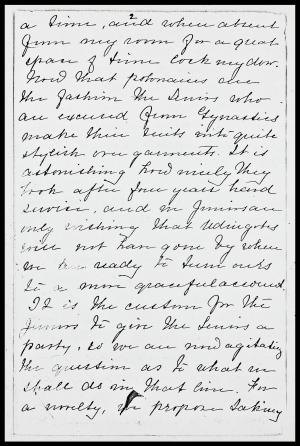 2
a time, and when absent
from my room for a great
space of time lock my door.
Now that polonaises are
the fashion the Seniors who
are excused from Gymnastics
make their suits into quite
stylish over garments. It is
astonishing how nicely they
look after four years hard
service, and we Juniors are
only wishing that Redingotes
will not have gone by when
we are ready to turn ours
to a more graceful account.
It is the custom for the
Juniors to give the Seniors a
party, so we are now agitating
the question as to what we
shall do in that line. For
a novelty, we propose taking